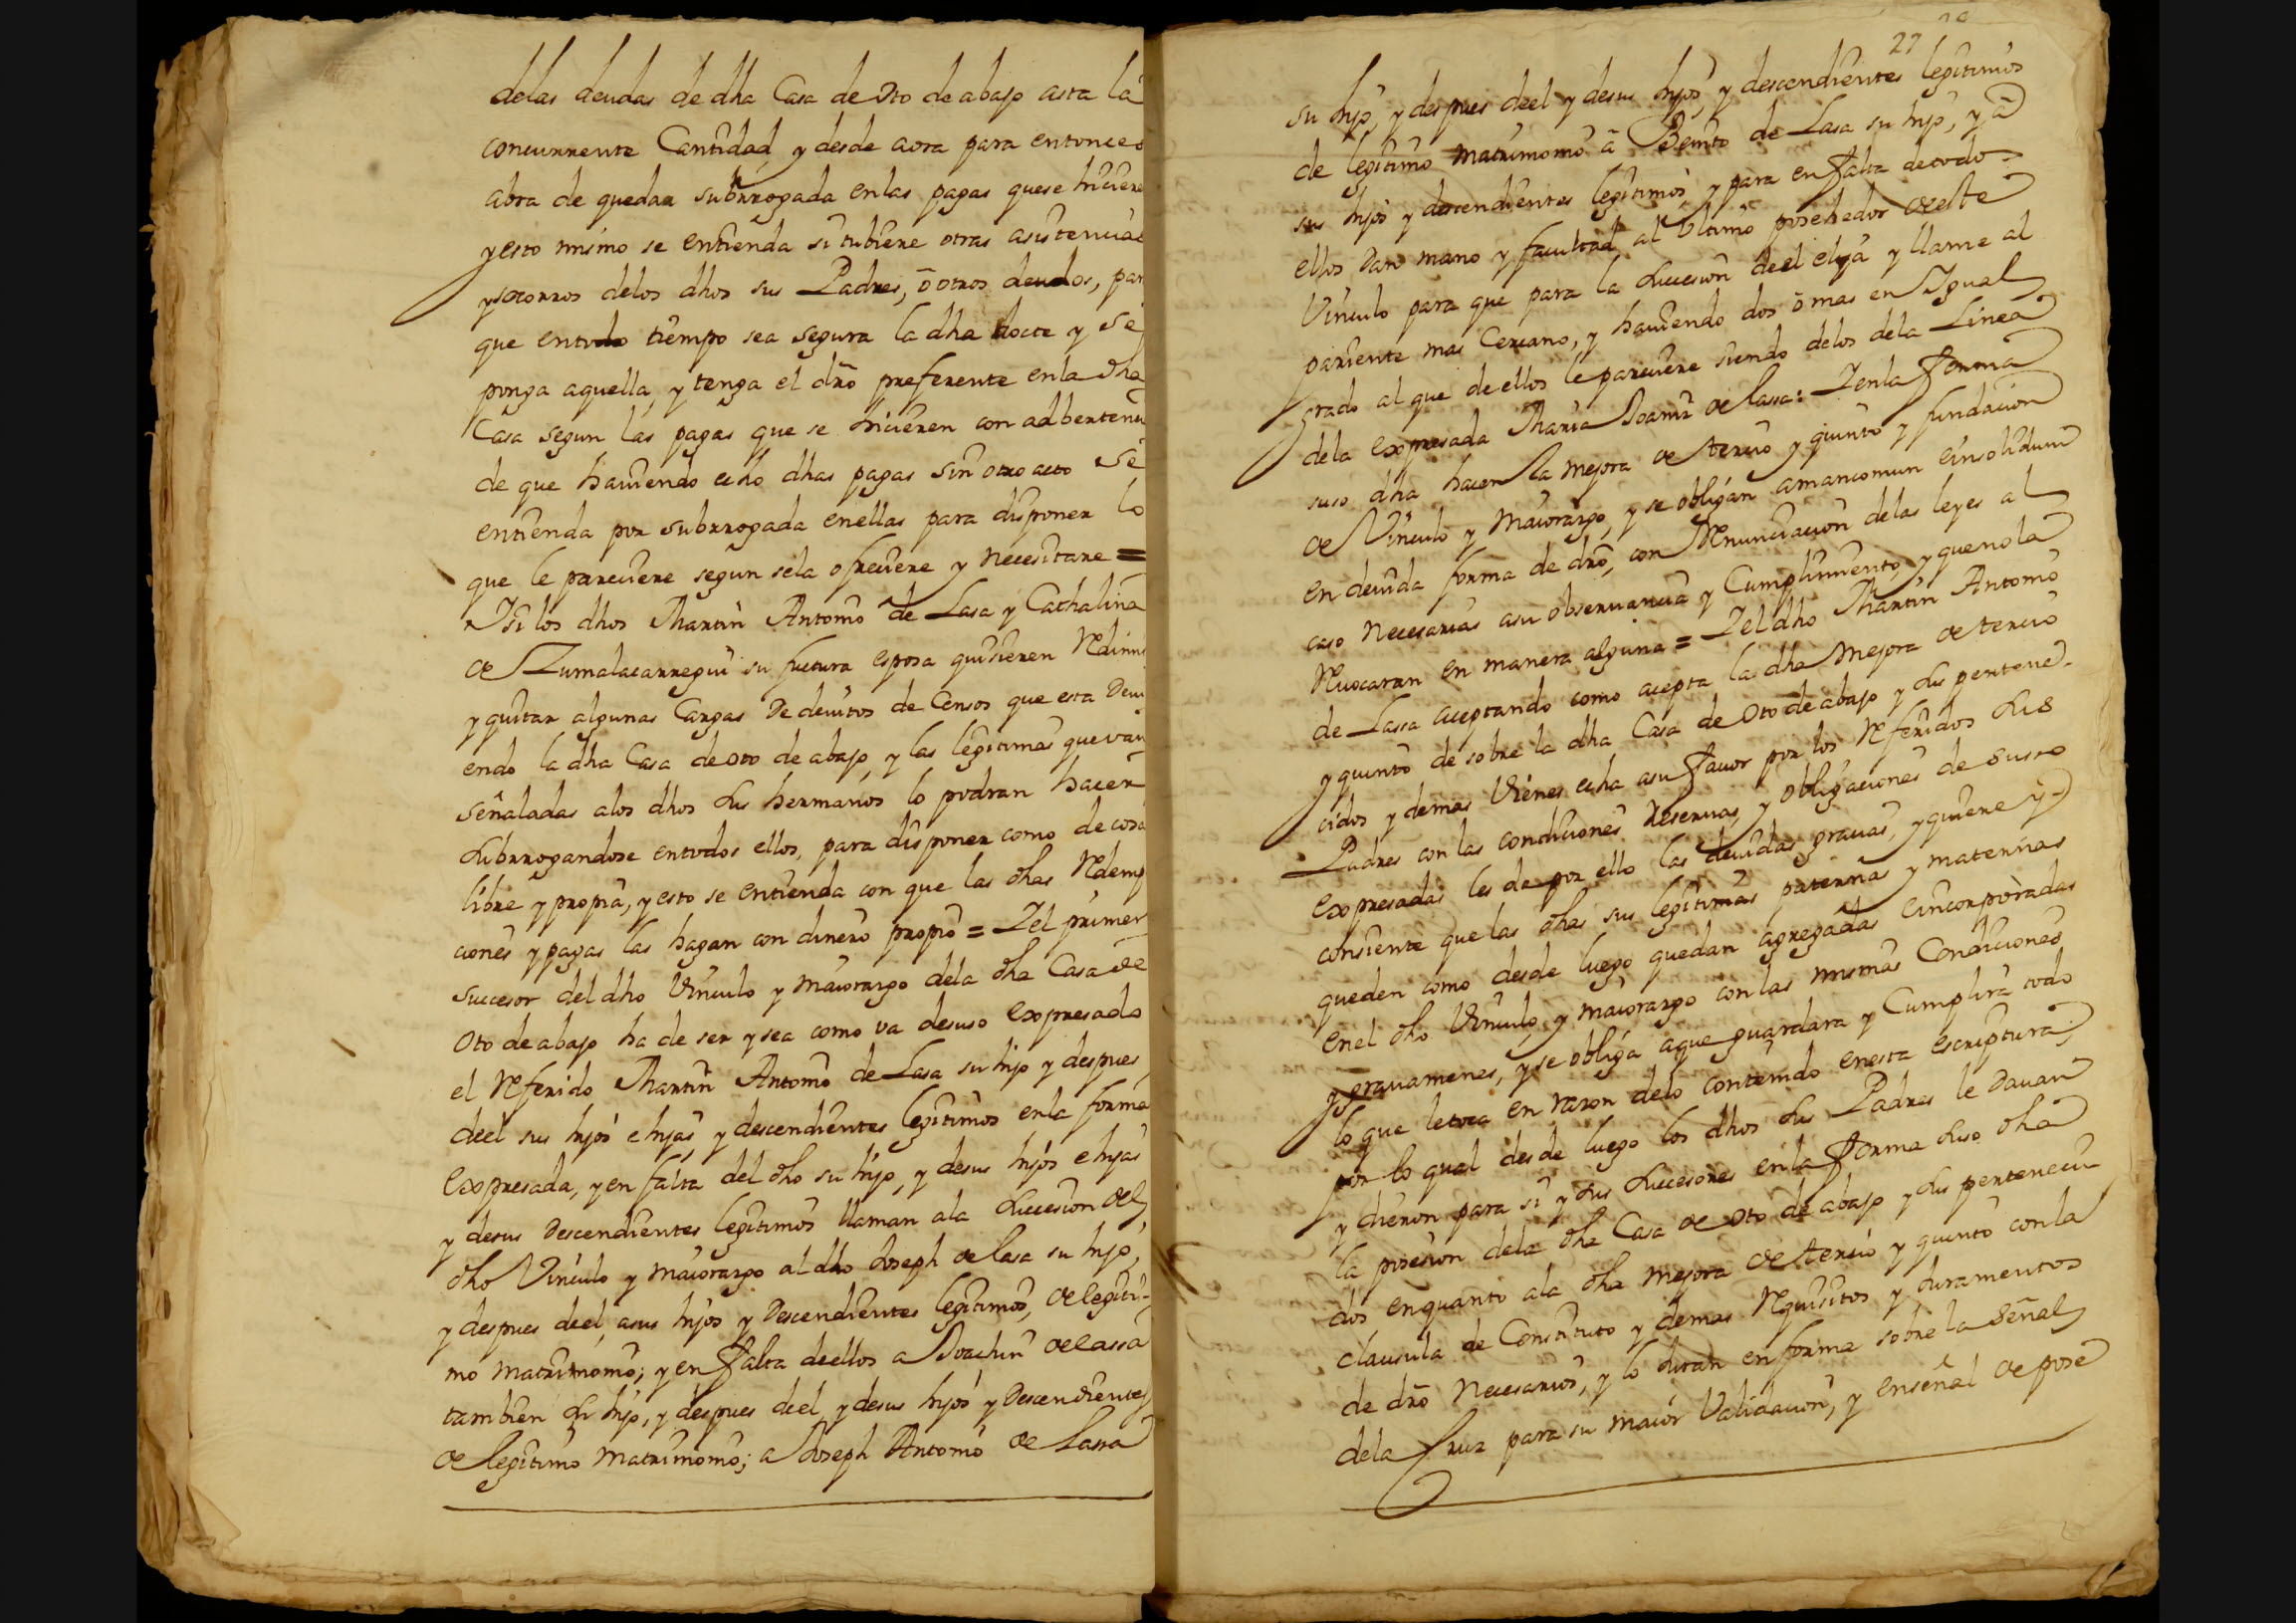 delas deudas de dha Casa de Oto de abajo asta la
concurrente Cantidad, y desde aora para entonces
abra de quedar subrrogada en las pagas quese hicieren
y esto mismo se entienda si tubiere otras asistencias
y socorros delos dhos sus Padres, ô otros deudos, par
que entodo tiempo sea segura la dha docte y se
ponga aquella, y tenga el dr̃o preferente enla dha
Casa segun las pagas que se hicieren con adbertenci
de que haviendo echo dhas pagas sin otro acto se
entienda por subrrogada enellas para disponer lo
que le pareciere segun sela ofreciere y necesitare =
Y si los dhos Martin Antonio de Lasa y Cathalina
de Zumalacarregui su fuctura esposa quisieren Redimir
y quitar algunas Cargas De devitos de Censos que esta Devi
endo la dha Casa de oto de abajo, y las legitimas quevan
señaladas alos dhos sus hermanos lo podran hacer
subrrogandose entodos ellos, para disponer como de cosa
libre y propia, y esto se entienda con que las dhas Redemp
ciones y pagas las hagan con dinero propio = Y el primer
succesor del dho Vinculo y maiorazgo dela dha Casa de
Oto de abajo ha de ser y sea como va desuso expresado
el Referido Martin Antonio de Lasa su hijo y despues
deel sus hijos e hijas y descendientes legitimos enla forma
expresada, y en falta del dho su hijo, y desus hijos e hijas
y desus Descendientes legitimos llaman ala succesion del
dho Vinculo y maiorazgo al dho Joseph de lasa su hijo,
y despues deel, asus hijos y Descendientes legitimos, de legiti-
mo matrimonio; y en falta deellos a Joachin de lassa
tambien su hijo, y despues deel y desus hijos y Descendientes
de legitimo matrimonio; a Joseph Antonio de Lassa
27
su hijo, y despues deel y desus hijos, y descendientes legitimos
de legitimo matrimonio â Benito de Lasa su hijo, y â
sus hijos y descendientes legitimos, y para en falta detodos
ellos Dan mano y facultad al Ultimo posehedor deeste
Vinculo para que para la succesion deel elija y llame al
pariente mas Cercano, y haviendo dos ô mas en Igual
grado al que de ellos le pareciere siendo delos dela Linea
dela expresada Maria Joaniz de lassa: Y enla forma
suso dha hacen la mejora de tercio y quinto y fundacion
de Vinculo y Maiorazgo, y se obligan amancomun einsolidum
en devida forma de dr̃o, con Renunciacion delas leyes al
caso Necesarias asu observancia y Cumplimiento, y quenola
Revocaran en manera alguna = Y el dho Martin Antonio
de Lassa aceptando como acepta la dha Mejora de tercio
y quinto de sobre la dha Casa de Oto de abajo y sus pertene-
cidos y demas Vienes echa asu favor por los Referidos sus
Padres con las condiciones Reservas, y obligaciones de suso
expresadas les da por ello las devidas gracias, y quiere y
consiente que las dhas sus legitimas paternas y maternas
queden como desde luego quedan agregadas eincorporadas
enel dho Vinculo y maiorazgo con las mismas Condiciones
y gravamenes, y se obliga aque guardara y Cumplira todo
lo que letoca en razon delo contenido enesta escriptura,
por lo qual desde luego los dhos sus Padres le Davan
y dieron para si y sus succesores enla forma suso dha
la posesion dela dha Casa de Oto de abajo y sus pertenecí
dos enquanto ala dha mejora de tercio y quinto con la
clausula de Constituto y demas Requisitos y Juramentos
de dr̃o Necesarios, y lo Juran en forma sobre la señal
dela Cruz para su maior Validacion, y enseñal de pose